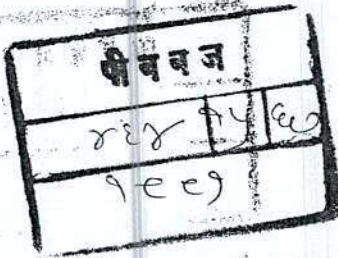 पीबबज
४६४ १५ ६७
१९९१